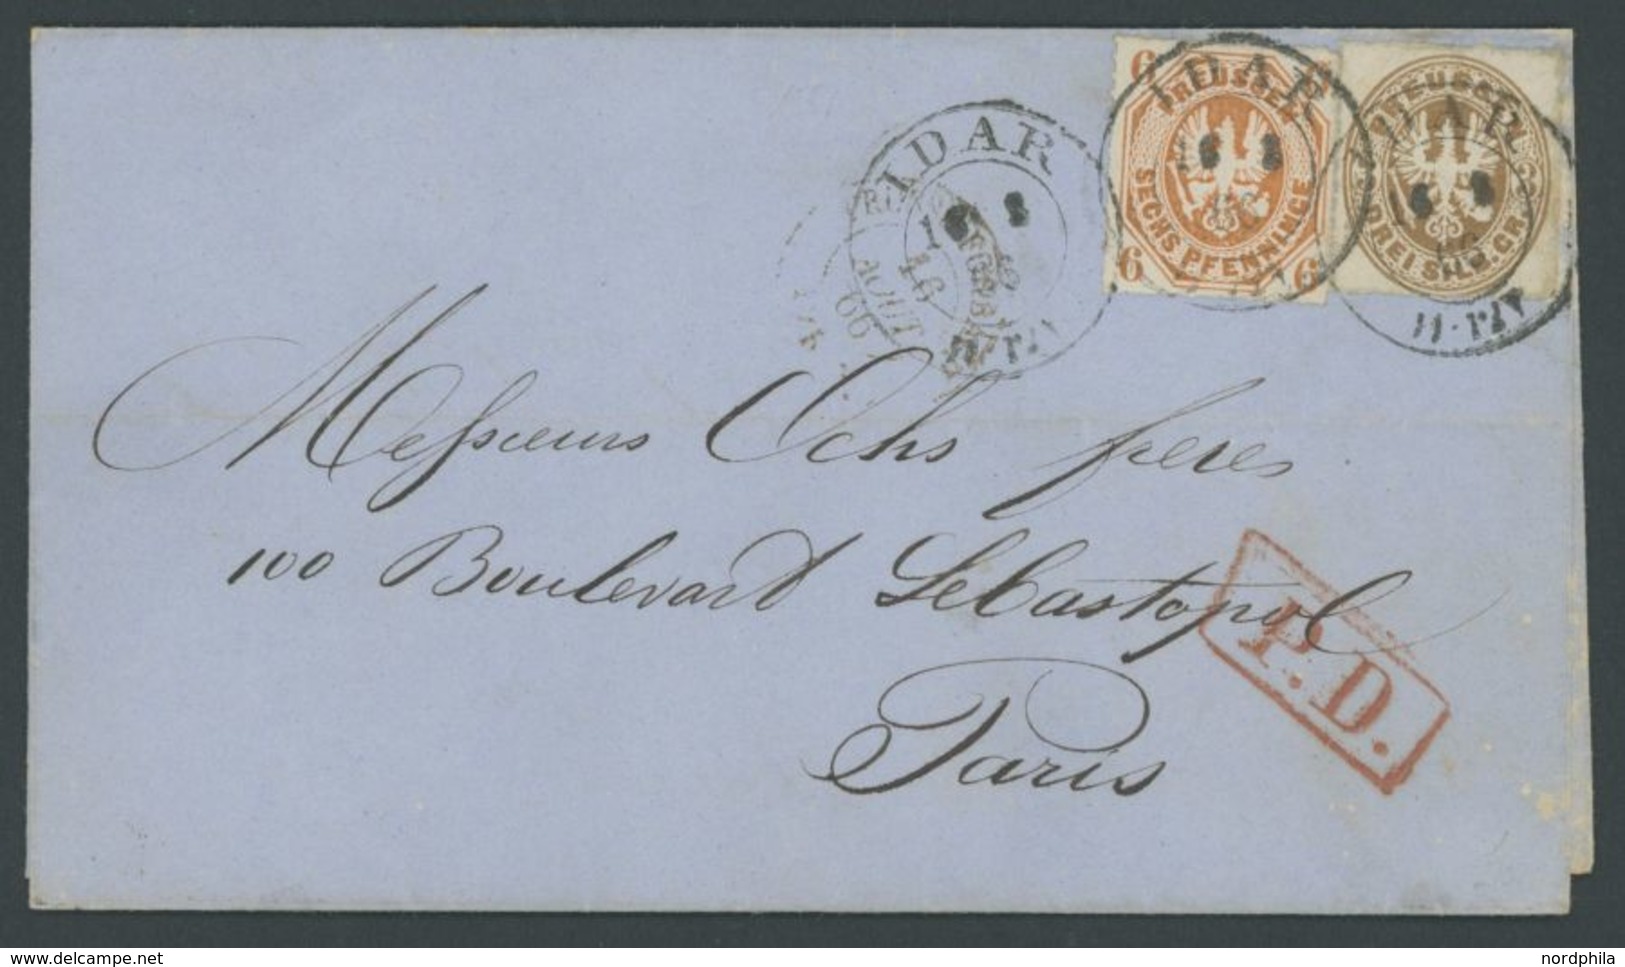 IDAR
IDAR
IDAR
16
AOUT
66
6
PREUSSEN
SECHS PFENNINGE
6 6
PREUSSEN
DREI SILB. GR.
Messieurs Ochs freres
100 Boulevard Sebastopol
P.D.
Paris
www.delcampe.net
nordphila